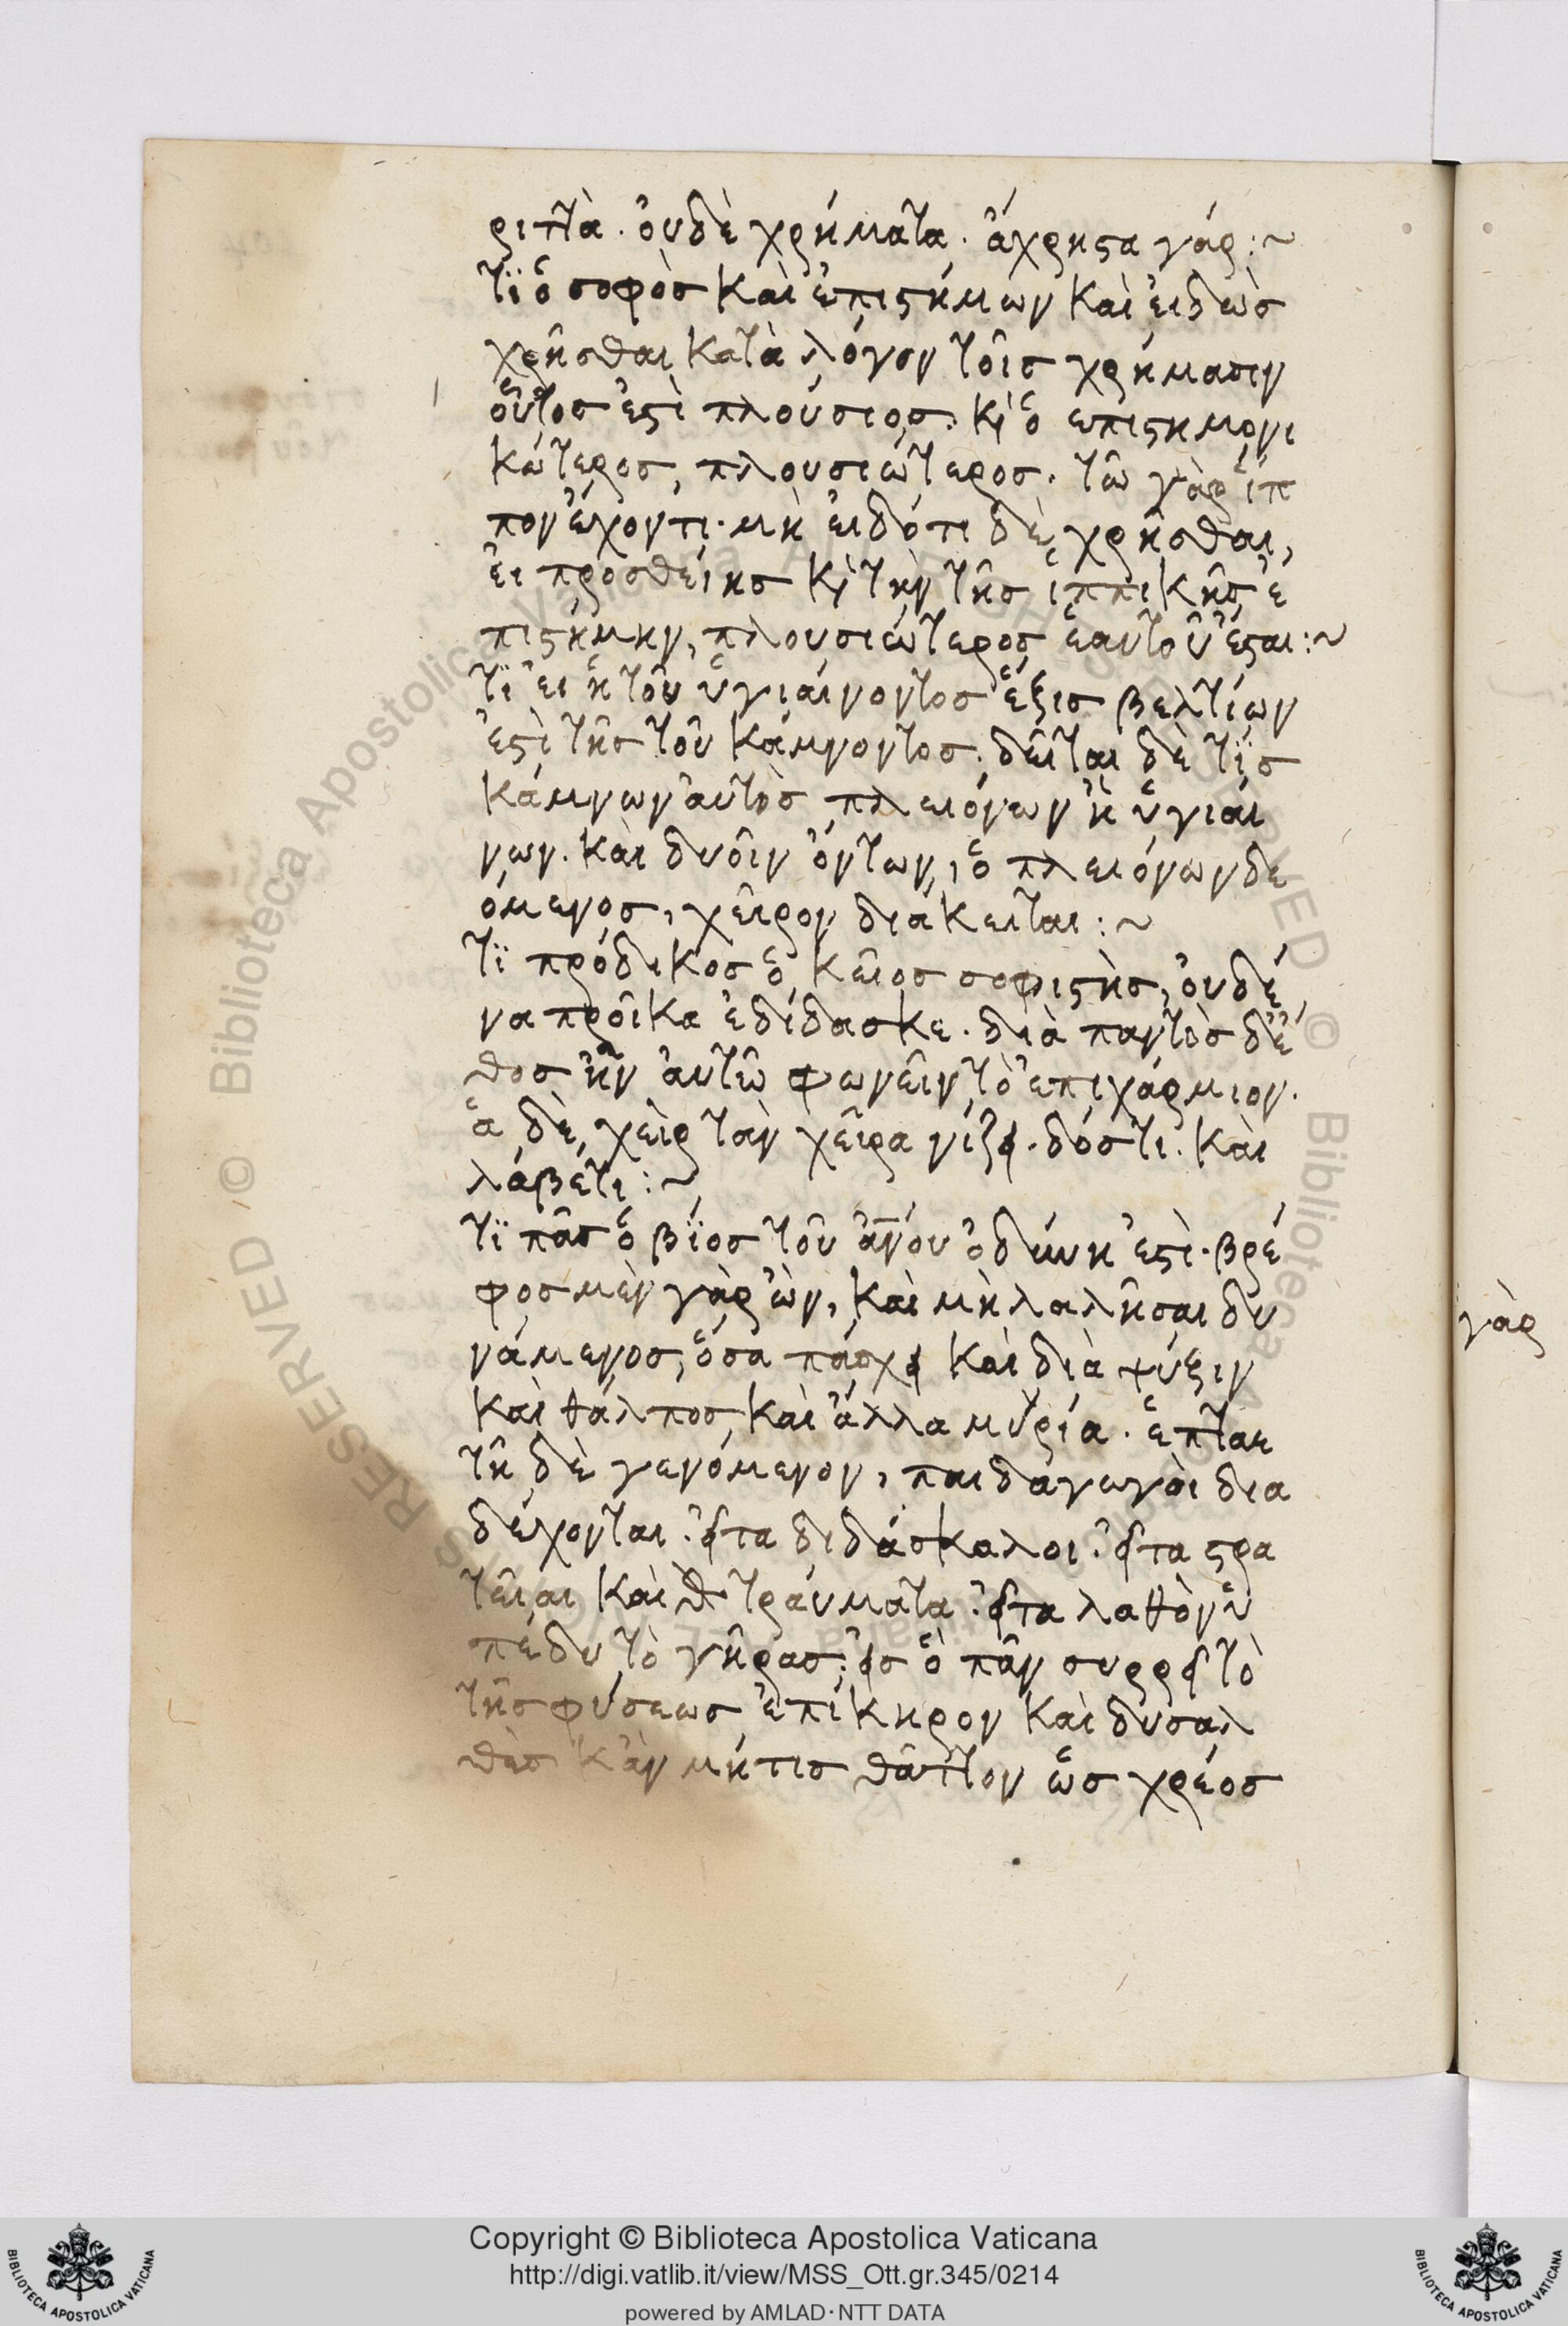 ριττὰ· ὀυδὲ χρήματα· ἄχρηστα γάρ:~
τϊ ὁ σοφὸσ καὶ ἐπιστήμων καὶ ἐιδὼσ
χρῆσθαι κατὰ λόγον τοῖσ χρήμασιν
οὗτοσ ἐστὶ πλούσιοσ· κὶ ὁ επιστημονι
κώτεροσ, πλουσιώτεροσ· τῶ γὰρ ἵπ
πον ἔχοντι· μὴ ἐιδότι δὲ χρῆσθαι,
ἐι προσθείησ κὶ τὴν τῆσ ἱππικῆσ ἐ
πιστήμην, πλουσιώτεροσ ἑαυτοῦ ἔσται:~
τϊ ἐι ἡ τοῦ ὑγιαίνοντοσ ἕξισ βελτίων
ἐστὶ τῆσ τοῦ κάμνοντοσ· δεῖται δὲ τϊσ
κάμνων ἀυτὸσ πλειόνων ἢ ὑγιαί
νων· καὶ δυοῖν ὄντων, ὁ πλειόνων δε
όμενοσ, χεῖρον διάκειται:~
τϊ πρόδικοσ ὁ κεῖοσ σοφιστὴσ, ὀυδέ
να προῖκα ἐδίδασκε· διὰ παντὸσ δὲ ἔ
θοσ ἦν ἀυτῶ φωνεῖν τὸ ἐπιχάρμιον·
ἁ δὲ χεὶρ τὰν χεῖρα νίζει· δόσ τι· καὶ
λάβέ τι:~
τϊ πᾶσ ὁ βϊοσ τοῦ ἀνόυ ὀδύνη ἐστὶ· βρέ
φοσ μὲν γὰρ ὢν, καὶ μὴ λαλῆσαι δυ
νάμενοσ, ὅσα πάσχει καὶ διὰ ψύξιν
καὶ θάλποσ, καὶ ἄλλα μυρία· ἑπταε
τῆ δὲ γενόμενον, παιδάγωγοὶ δια
δέχονται· εἶτα διδάσκαλοι· εἶτα στρα
τεῖαι καὶ τραύματα· εἶτα λαθὸν ὑ
πέδυ τὸ γῆρασ· εἰσ ὃ πᾶν συρρεῖ τὸ
τῆσ φύσεωσ ἐπίκηρον καὶ δυσαλ
θὲσ κἂν μή τισ θᾶττον ὡσ χρέοσ
γὰρ
Copyright © Biblioteca Apostolica Vaticana
http://digi.vatlib.it/view/MSS_Ott.gr.345/0214
powered by AMLAD·NTT DATA